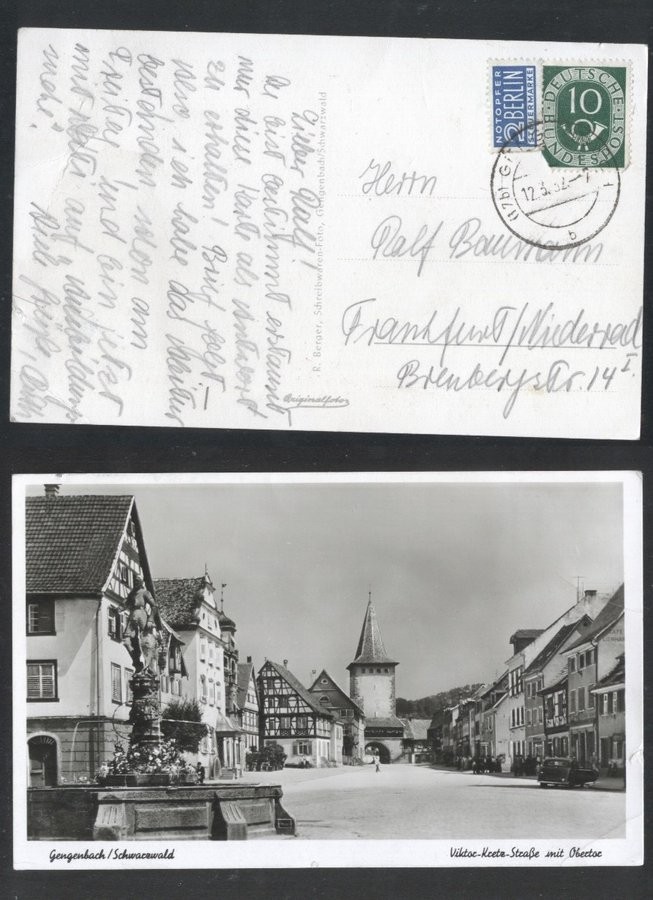 Lieber Ralf!
Du bist bestimmt erstaunt
nur eine Karte als Antwort
zu erhalten! Bin jetzt –
denn ich habe das Abitur
bestanden schon am
und bin jetzt
mit auf
mehr.
Viele Grüße,
R. Berger, Schreibwaren-Foto, Gengenbach/Schwarzwald
Originalfoto
NOTOPFER
2 BERLIN
STEUERMARKE
DEUTSCHE BUNDESPOST
10
(17b) G
12.8.52.-7
b
Herrn
Ralf Baumann
Frankfurt/Niederrad
Brenbergstr. 14 I.
Gengenbach/Schwarzwald
Viktor-Kretz-Straße mit Obertor